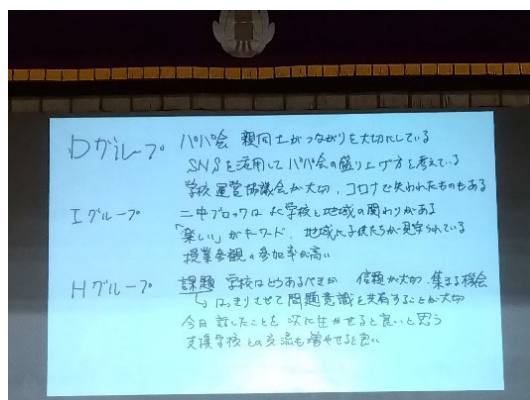 Dグループ パパ会 親同士がつながりを大切にしている
SNSを活用してパパ会の盛り上げ方を考えている
学校運営協議会が大切、コロナで失われたものもある
Iグループ 二中ブロックは 学校と地域の関わりがある
「楽しい」がキーワード、地域に子供たちが見守られている
授業参観の参加率が高い
Hグループ 課題 学校はどうあるべきか 信頼が大切、集まる機会
はっきりさせて問題意識を共有することが大切
今日話したことを次に生かせると良いと思う
支援学校との交流も増やせると良い